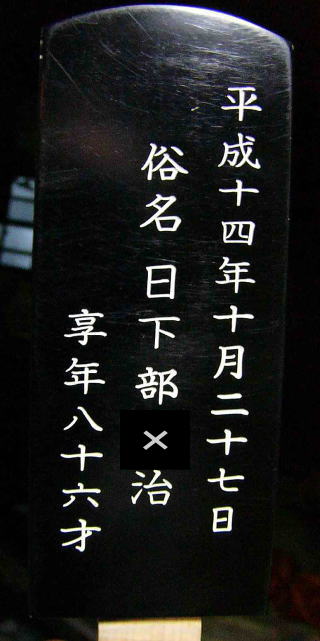 平成十四年十月二十七日
俗名 日下部×治
享年八十六才